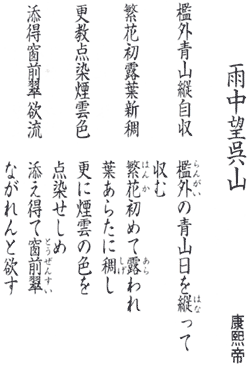 雨中望呉山
康熙帝
檻外青山縦自収
繁花初露葉新稠
更教点染煙雲色
添得窗前翠欲流
檻外の青山日を縦って
らんがい はな
収む
繁花初めて露われ
はんか あら
葉あらたに稠し
しげ
更に煙雲の色を
点染せしめ
添え得て窗前翠
とうぜんすい
ながれんと欲す